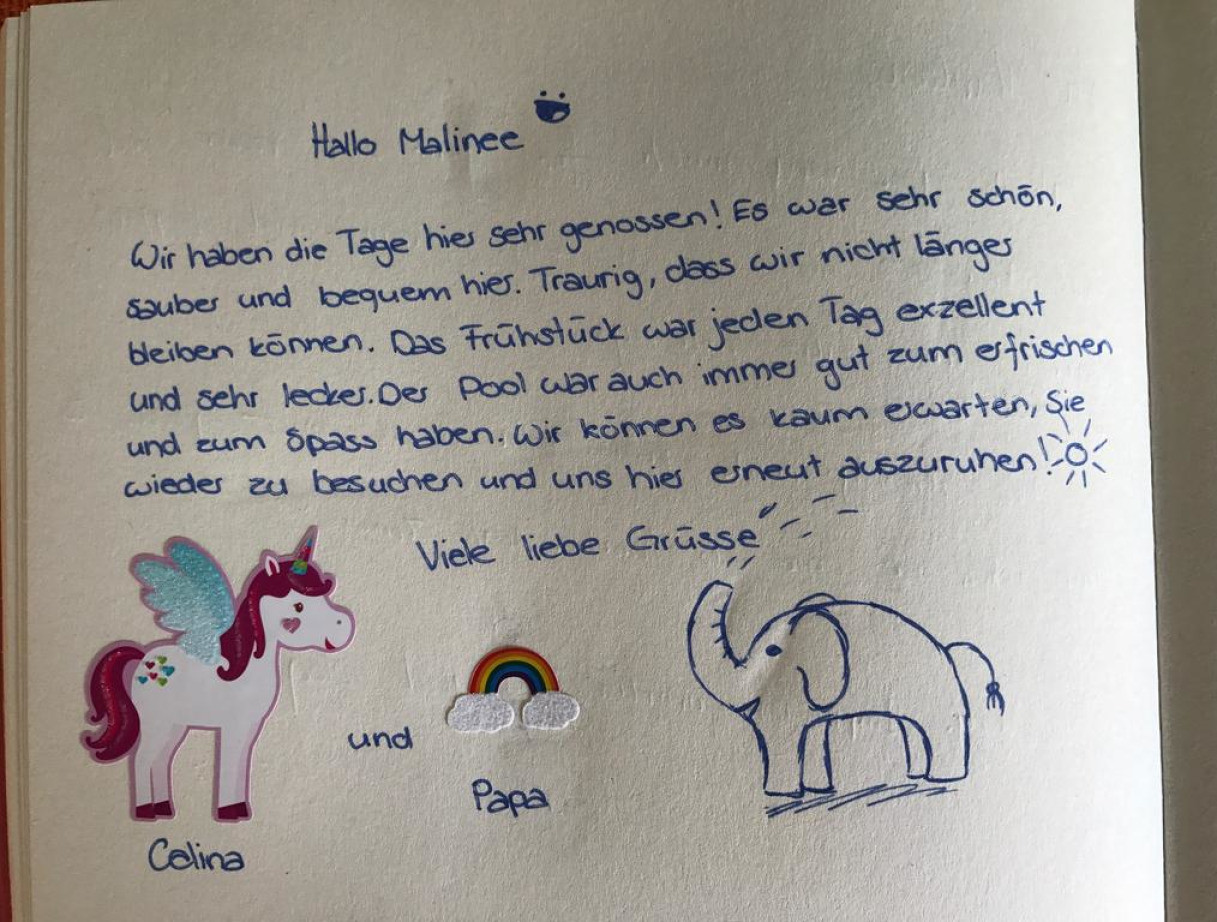 Hallo Malinee
Wir haben die Tage hier sehr genossen! Es war sehr schön,
sauber und bequem hier. Traurig, dass wir nicht länger
bleiben können. Das Frühstück war jeden Tag exzellent
und sehr lecker. Der Pool war auch immer gut zum erfrischen
und zum Spass haben. Wir können es kaum erwarten, Sie
wieder zu besuchen und uns hier erneut auszuruhen!
Viele liebe Grüsse
und
Papa
Celina